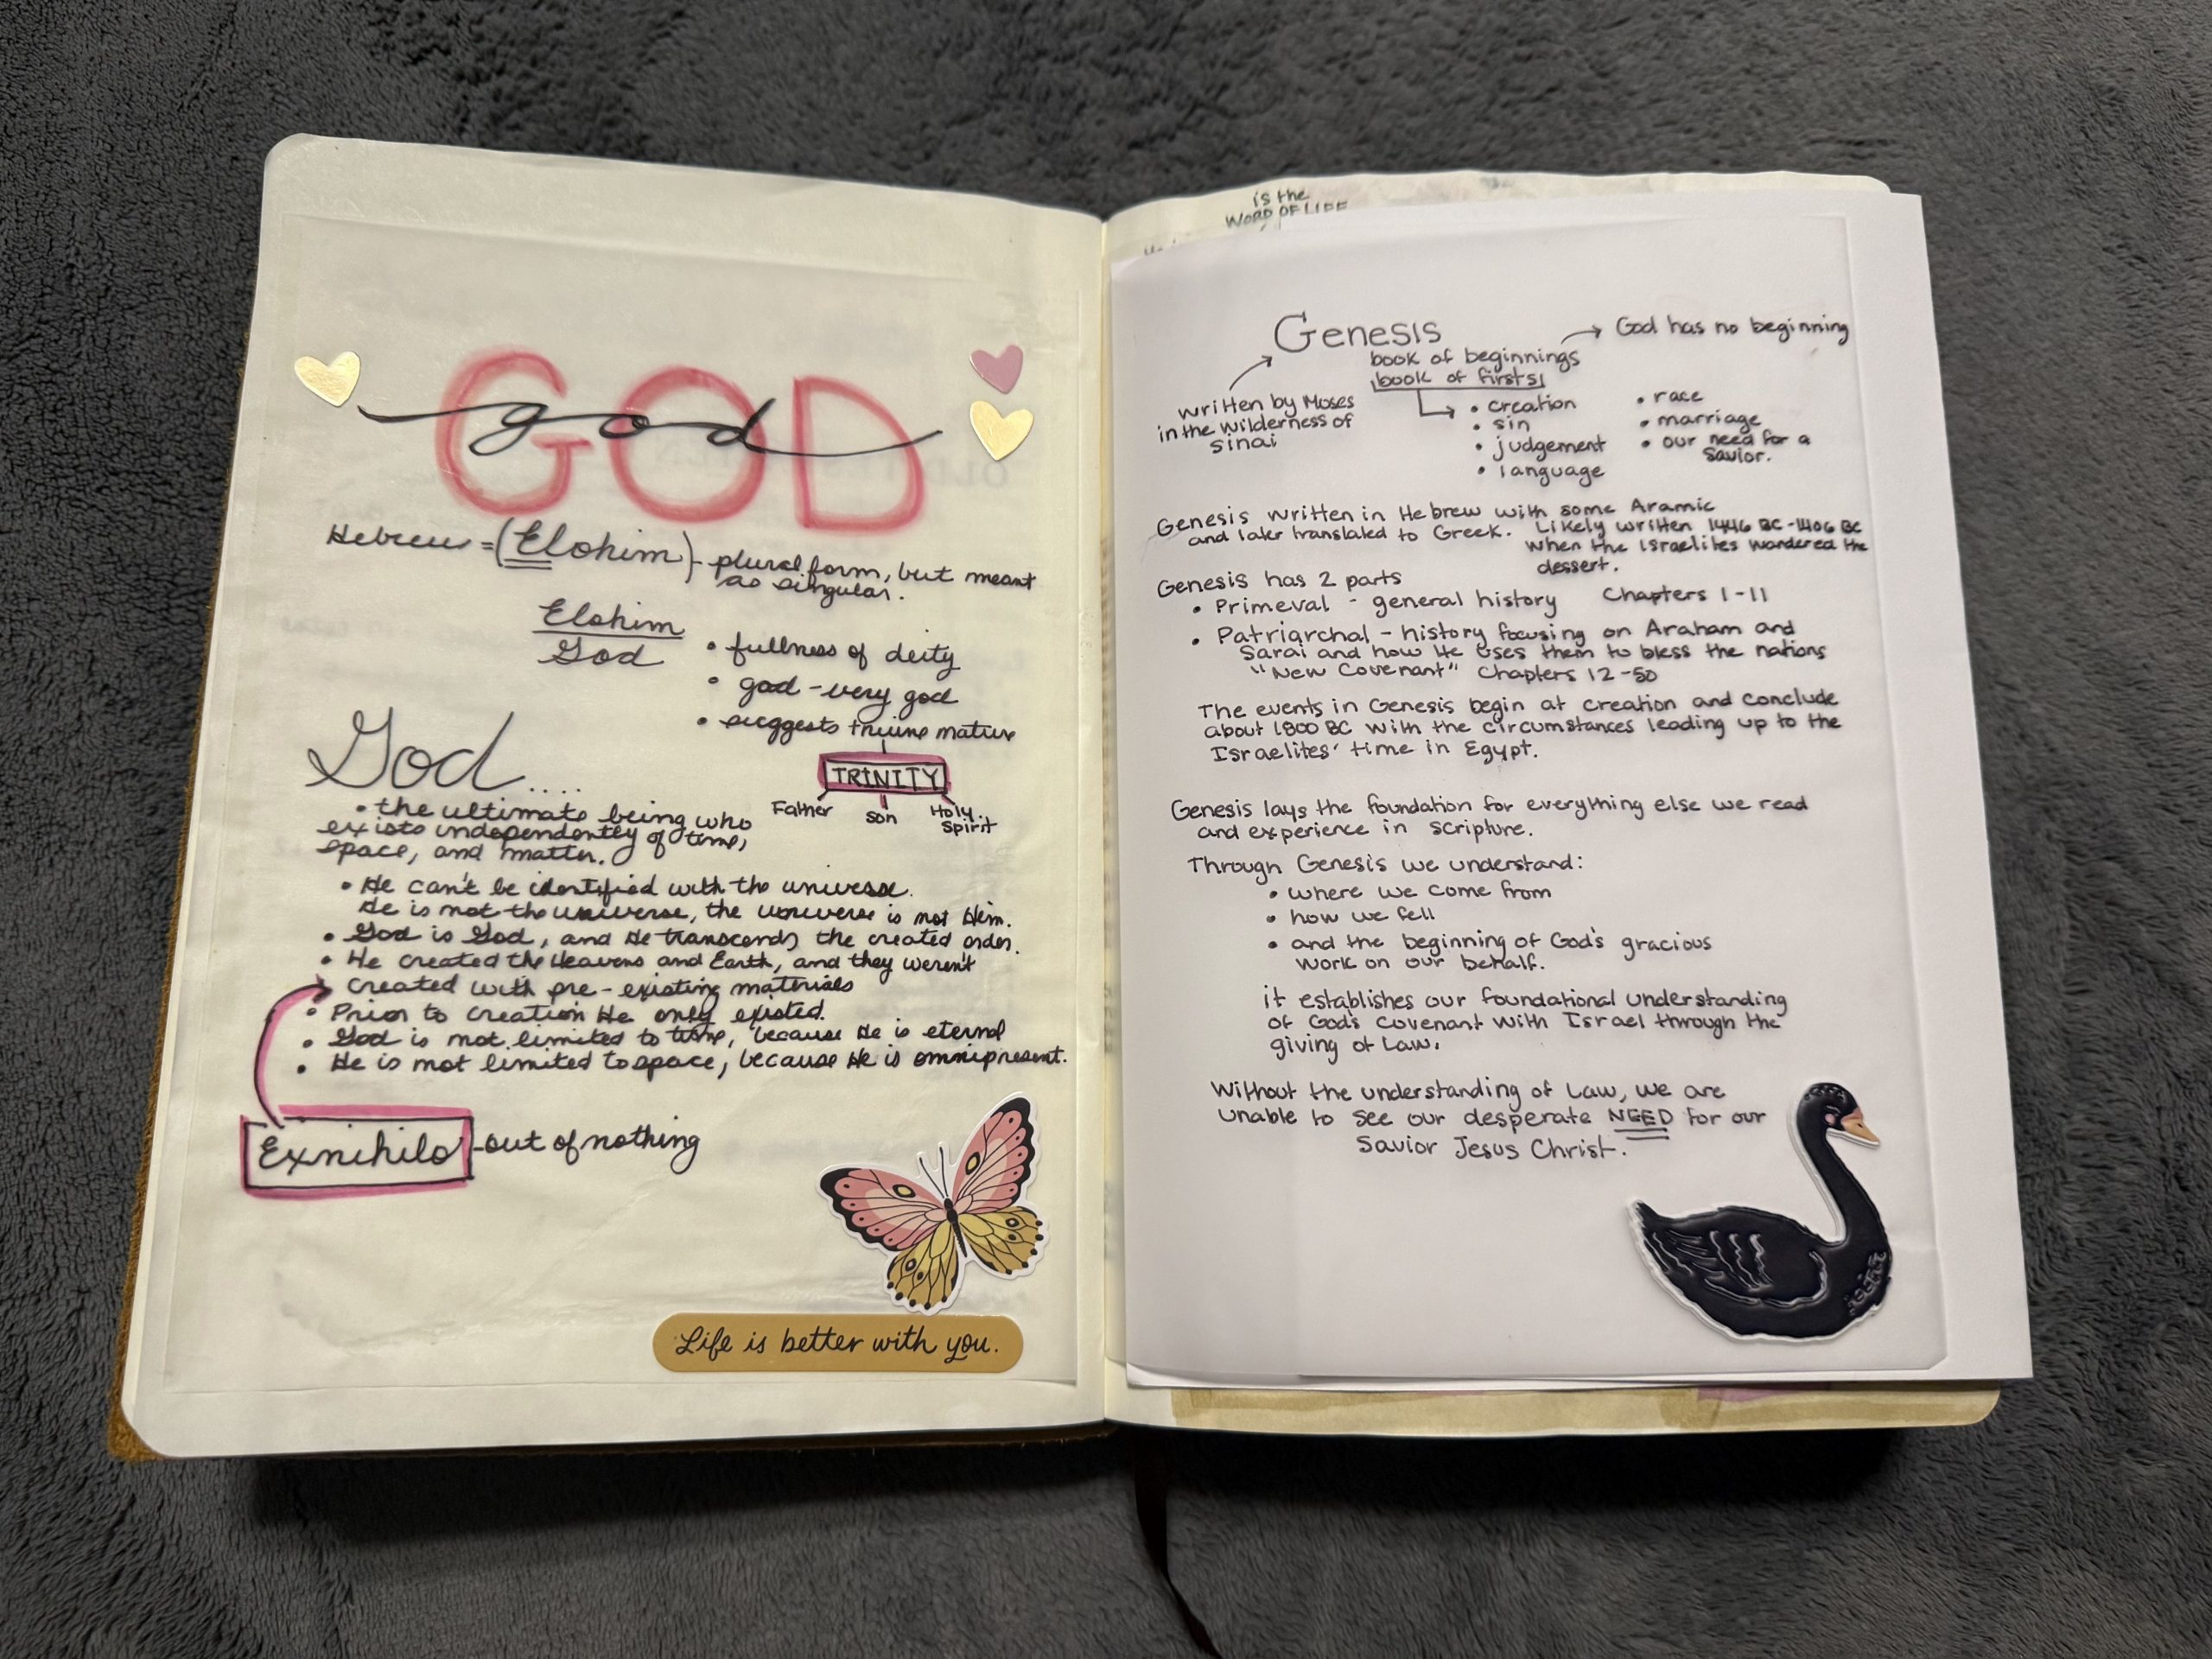 GOD
god
Hebrew = (Elohim) - plural form, but meant
as singular.
Elohim
God
• fullness of deity
• god - very god
• suggests triune nature
TRINITY
Father
Son
Holy
Spirit
God....
• the ultimate being who
exists independently of time,
space, and matter.
• He can't be identified with the universe.
He is not the universe, the universe is not Him.
• God is God, and He transcends the created order.
• He created the Heavens and Earth, and they weren't
created with pre-existing materials
• Prior to creation He only existed.
• God is not limited to time, because He is eternal
• He is not limited to space, because He is omnipresent.
Exnihilo - out of nothing
Life is better with you.
is the
WORD OF LIFE
Genesis
God has no beginning
book of beginnings
book of firsts
written by Moses
in the wilderness of
Sinai
• creation
• sin
• judgement
• language
• race
• marriage
• our need for a
Savior.
Genesis written in Hebrew with some Aramic
and later translated to Greek. Likely written 1446 BC - 1406 BC
when the Israelites wandered the
dessert.
Genesis has 2 parts
• Primeval - general history Chapters 1-11
• Patriarchal - history focusing on Araham and
Sarai and how He uses them to bless the nations
"New Covenant" Chapters 12-50
The events in Genesis begin at creation and conclude
about 1800 BC with the circumstances leading up to the
Israelites' time in Egypt.
Genesis lays the foundation for everything else we read
and experience in scripture.
Through Genesis we understand:
• where we come from
• how we fell
• and the beginning of God's gracious
work on our behalf.
it establishes our foundational understanding
of God's covenant with Israel through the
giving of Law.
Without the understanding of Law, we are
unable to see our desperate NEED for our
Savior Jesus Christ.